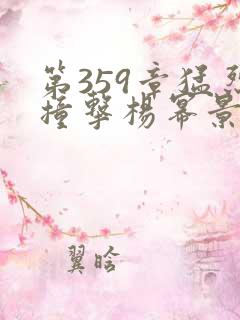 第359章猛烈
撞擊楊冪景
翼晗